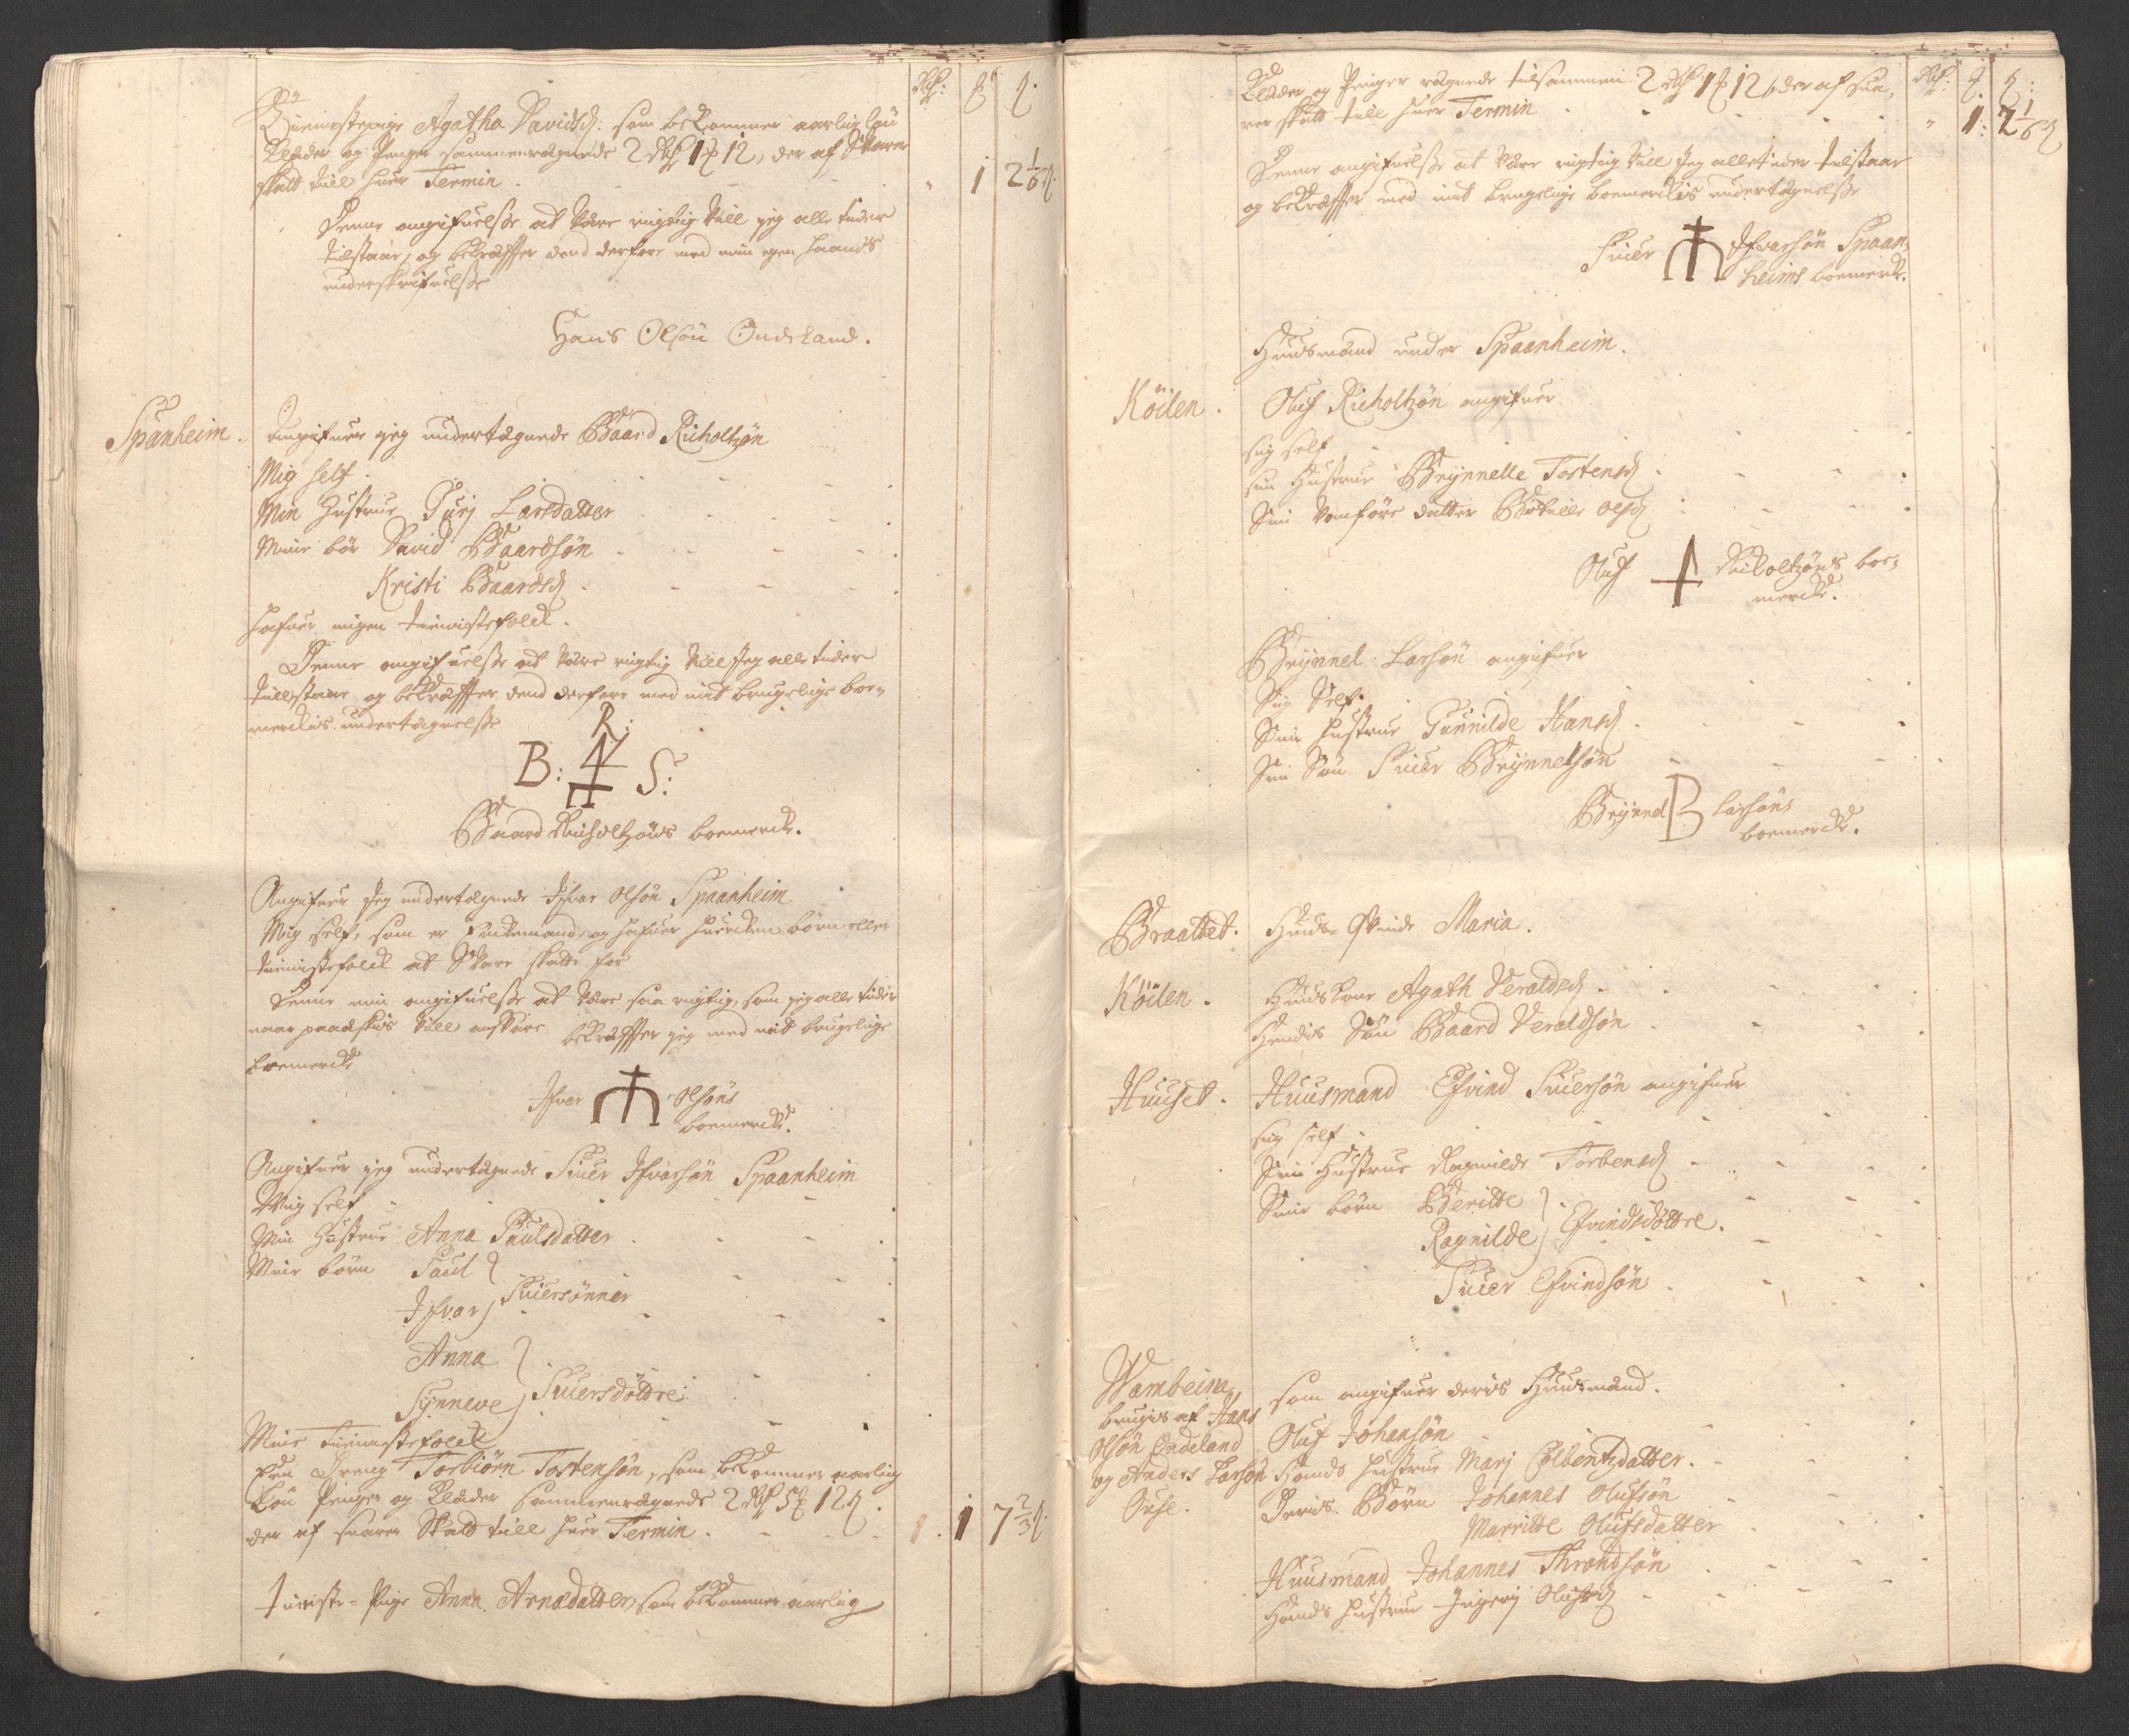 Rdr: ₰ s.
Tienistepige Agatha Davidsd: som bekommer aarlig løn
Klæder og Penge sammenregnede 2 Rdr 1 ₰ 12, der af Svarer
skatt till huer Termin . - - - " 1 2 1/6 s.
Denne angifuelsse at være rigtig vill jeg alle tider
tilstaar, og bekræffter dend derfore med min egen haands
underskrifuelsse
Hans Olsøn Ondeland.
Spanheim. Angifuer jeg undertegnede Baard Richoltzøn
Mig self.
Min Hustrue Guri Larsdatter
Mine bør David Baardsøn
Kristi Baardsd
hafuer ingen tienistefolck.
Denne angifuelsse at være rigtig vill Jeg alle tider
tillstaar og bekræffter dend derfore med mit brugelige boe-
merckis undertegnelsse
R:
B: S:
Baard Richoltzøns boemerck.
Angifuer Jeg undertegnede Ifvar Olsøn Spaanheim
Mig self, som er Enckemand, og hafuer huercken børn eller
tienistefolck at Svare skatt for
Denne min angifuelsse at være saa rigtig, som jeg alle tider
naar paaæskis vill ansvare bekræffter jeg med mit brugelige
boemerck
Ifvar Olsøns
boemerck.
Angifuer jeg undertegnede Siuer Ifvarsøn Spaanheim
Mig self
Min Hustrue Anna Paulsdatter
Mine børn Paul
Ifvar Siuersønner
Anna
Synneve Siuersdøttre
Mine Tienistefolck
Een Dreng Torbiørn Tostensøn, som bekommer aarlig
Løn Penger og Klæder sammenregnede 2 Rdr 5 ₰ 12 s.
der af suarer Skatt till huer Termin. - - - 1 . 1 7 2/3 s.
tieniste-Pige Anna Arnedatter, som bekommer aarlig
Klæder og Penger regnede tilsammen 2 Rdr 1 ₰ 12, der af sua- Rdr: ₰. s:
rer skatt till huer Termin - - - " 1: 2 1/6 s
Denne angifuelsse at være rigtig vill Jeg alle tider tilstaar
og bekræffter med mit brugelige boemerckis undertegnelsse
Siuer Ifvarsøn Spaan-
heims boemerck.
Huusmænd under Spaanheim.
Köilen. Oluf Richoltzøn angifuer
sig self
sin Hustrue Brynnelle Tostensd
Sin vanføre datter Botille Olsd
Oluf Richoltzøns boe-
merck.
Brynnel Larsøn angifuer
Sig Self.
Sin hustrue Gunnilde Hansd
Sin Søn Siuer Brynnelsøn
Brynnel Larsøns
boemerck.
Braattet. Huus Qvinde Maria.
Köilen. Huuskone Agath Veraldsd
Hendis Søn Baard Veraldsøn
Huuset. Huusmand Efvind Siuersøn angifuer
sig self
Sin Hustrue Ragnilde Torbensd
Sine børn Beritte
Ragnilde Efvindsdøttre.
Siuer Efvindsøn
Wambeim, som angifuer deris Huusmænd.
brugis af Hans
Olsøn Ondeland Oluf Johansøn
og Anders Larsøn Hands hustrue Marj Colbentzdatter.
Ouse. Deris Børn Johannes Olufsøn
Marritte Olufsdatter
Huusmand Johannes Throndsøn
Hands hustrue Ingerj Olufsd